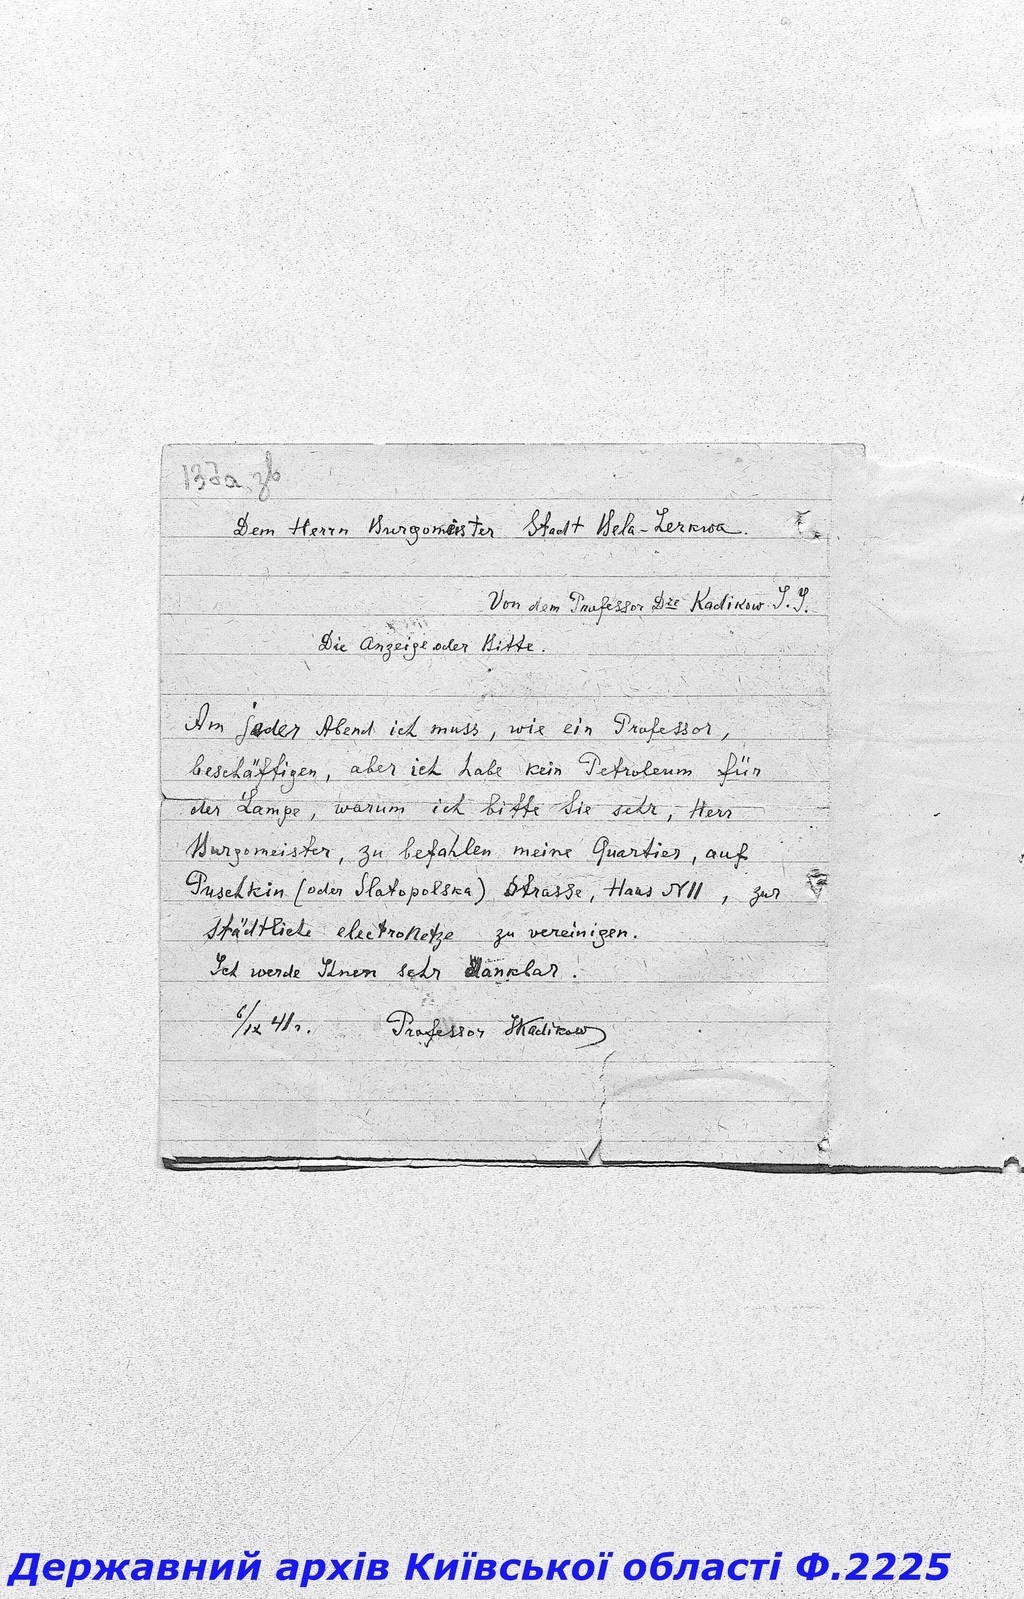 137а зв
Dem Herrn Burgomeister Stadt Bela-Zerkwa.
Von dem Professor Dre Kadikow I. I.
Die Anzeige oder Bitte.
Am jeder Abend ich muss, wie ein Professor,
beschäftigen, aber ich habe kein Petroleum für
der Lampe, warum ich bitte Sie sehr, Herr
Burgomeister, zu befahlen meine Quartier, auf
Puschkin (oder Slatopolska) Strasse, Haus N11, zur
städtliche electroNetze zu vereinigen.
Ich werde Ihnen sehr dankbar.
6/IX 41 г. Professor IKadikow
Державний архів Київської області Ф.2225